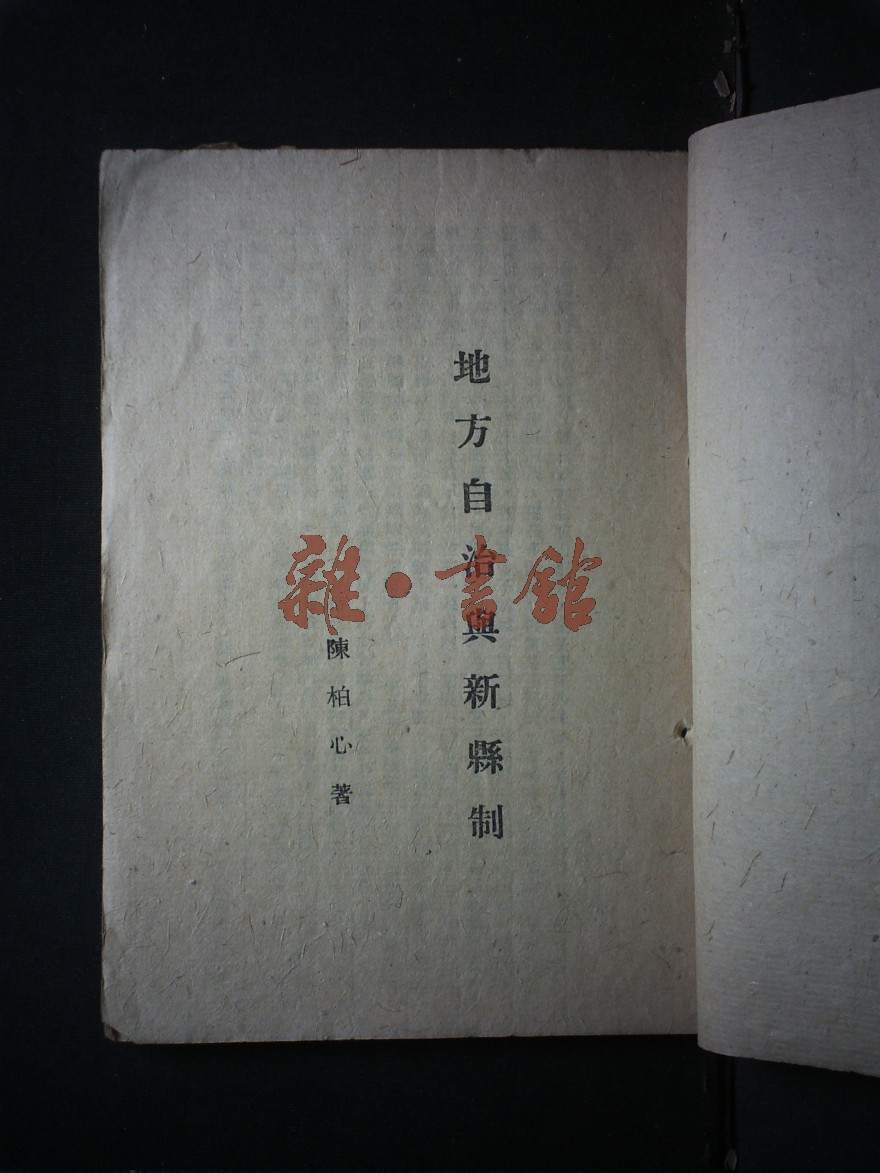 地方自治與新縣制
陳柏心著
雜·書館